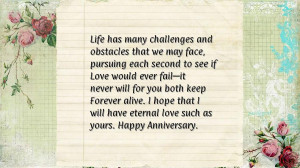 Life has many challenges and
obstacles that we may face,
pursuing each second to see if
Love would ever fail—it
never will for you both keep
Forever alive. I hope that I
will have eternal love such as
yours. Happy Anniversary.